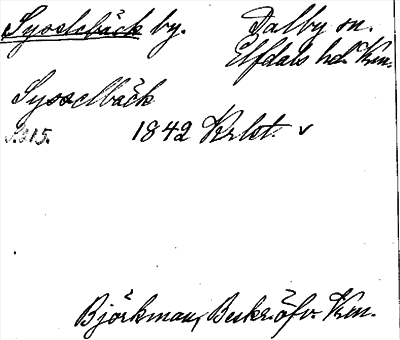 Sysslebäck by. Dalby sn.
Elfdals hd. Krm.
Sysselbäck
1842 Krlst. v
Björkman, Beskr. öfv. Vrm.